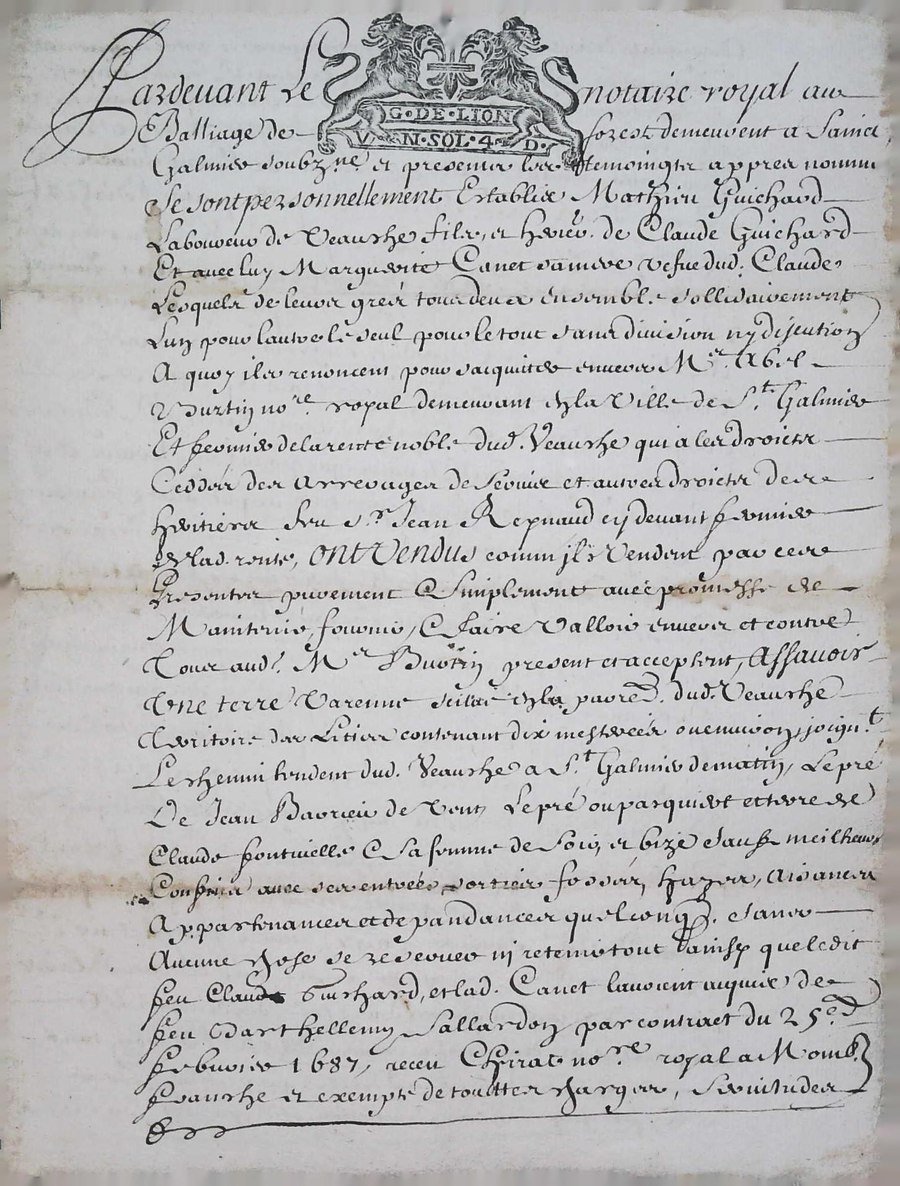 Pardevant Le notaire royal au
G·DE·LION
V N·SOL·4·D·
Balliage de forest demeurent a Sainct
Galmier soubzne. et presentz les temoingtz appres nommes
Se sont personnellement Establis Mathieu Guichard
Laboureur de Veauche fils, et heritier de Claude Guichard
Et avec luy Marguerite Canet sa mere vefve dud. Claude
Lesquels de leurs grés tous deux ensemble sollidairement
Lun pour lautre le seul pour le tout sans division ny discution
A quoy ils renoncent, pour sacquiter envers Mer. Abel
Burtin nore. royal demeurant en la Ville de St. Galmier
Et fermier de la rente noble dud. Veauche qui a les droicts
Ceddés des arrerages de servis et autres droicts des
heritiers feu Sr. Jean Reynaud cy devant fermier
de lad. rente, ont vendus comm ils vendent par ces
Presentes purement & simplement avec promesse de
Maintenir, fournir, & faire Valloir envers et contre
Tous aud. Mer Burtin present et acceptent, Assavoir
Une terre Varenne scituée en la parosse. dud. Veauche
Territoire des Litier contenant dix mesterées ou environ, joignt.
Le chemin tendent dud. Veauche a St. Galmier de matin, Le pré
De Jean Barrieu de Vent, Le pré ou parquier et terre de
Claude & sa femme de Soir, et bize sauf meilheurs
Confins avec ses entrées, sorties, fossés, hayes, Aisances
Appartenances et dependances quelconqs. sans
Aucune chose se reserver ni retenir tout ainsy que le dit
feu Claude Guichard, et lad. Canet lavoient acquis de
feu Barthellemy Sallardon par contract du 25e.
Febvrier 1687, receu nore. royal a Momb
et exempte de touttes charges, Servitudes